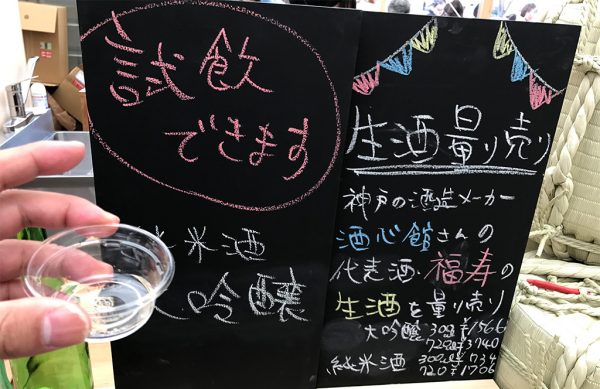 試飲
できます
米酒
吟醸
生酒量り売り
神戸の酒造メーカー
酒心館さんの
代表酒・福寿の
生酒を量り売り
大吟醸 300ml ¥1566
720ml ¥3740
純米酒 300ml ¥734
720 ¥1706